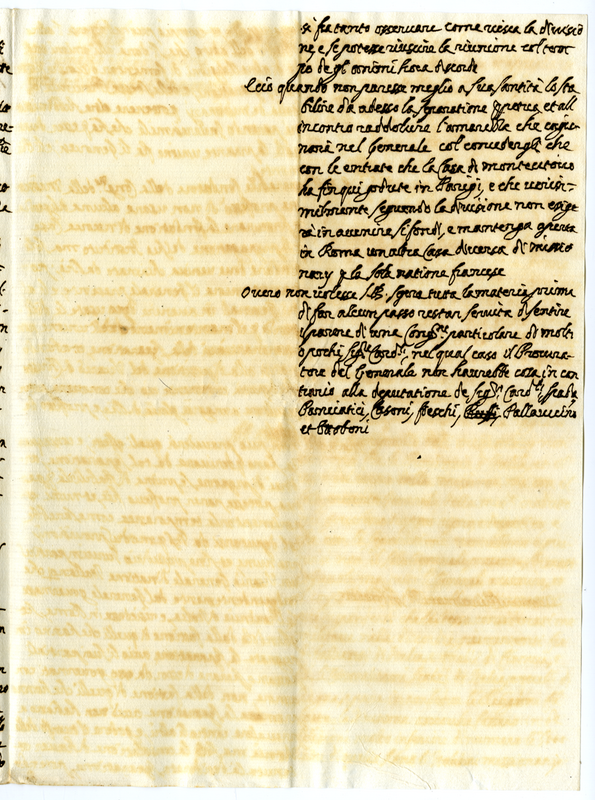 si fra tanto osservare come riesca la divisio
ne, e se potesse riuscire la riunione col tem
po de gl'animi hora discordi
Et ciò quando non paresse meglio a sua santità lo sta
bilire da adesso la separatione et all
incontro raddolcire l'amarezza che cagio
narà nel Generale col concedergli che
con le entrate che la Casa di montecitorio
ha fin qui godute in Parigi, e che verisi-
milmente seguendo la divisione non esige
rà in avvenire si fondi, e mantenga aperta
in Roma un altra Casa diversa di missio
narij p la sola natione francese
Overo non volesse S. Bne sopra tutta la materia prima
di far alcun passo restar servita di sentire
il parere di una Congne particolare di molti
o pochi sigri Cardli, nel qual caso il Procura-
tore del Generale non haverebbe cosa in con
trario alla deputatione de sigri Cardli Spada
Panciatici, Casoni, fieschi, Pallavicino
et Ottoboni